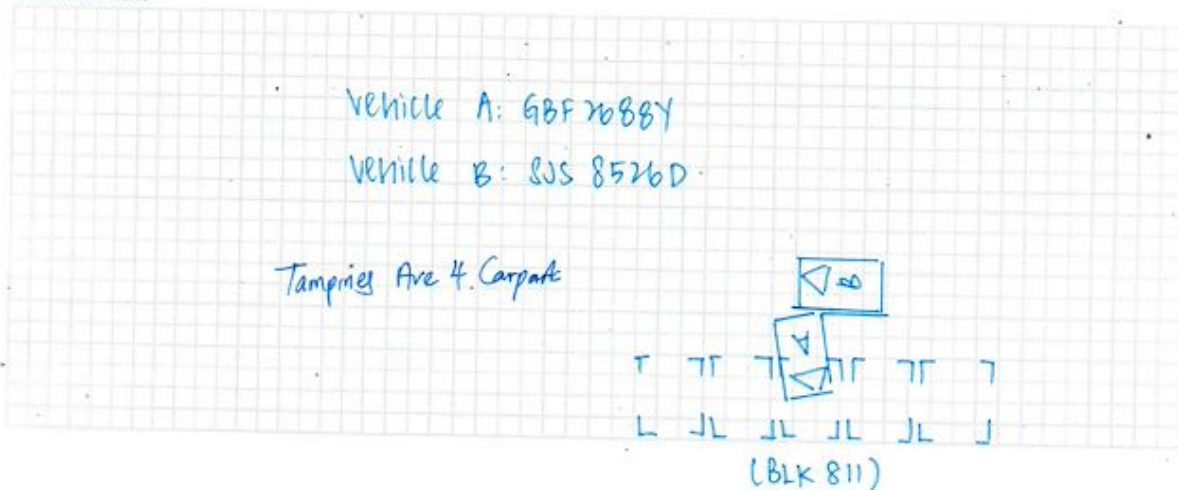 Vehicle A: GBF 2688Y
Vehicle B: SJS 8526D.
Tampines Ave 4. Carpark
B
A
(BLK 811)